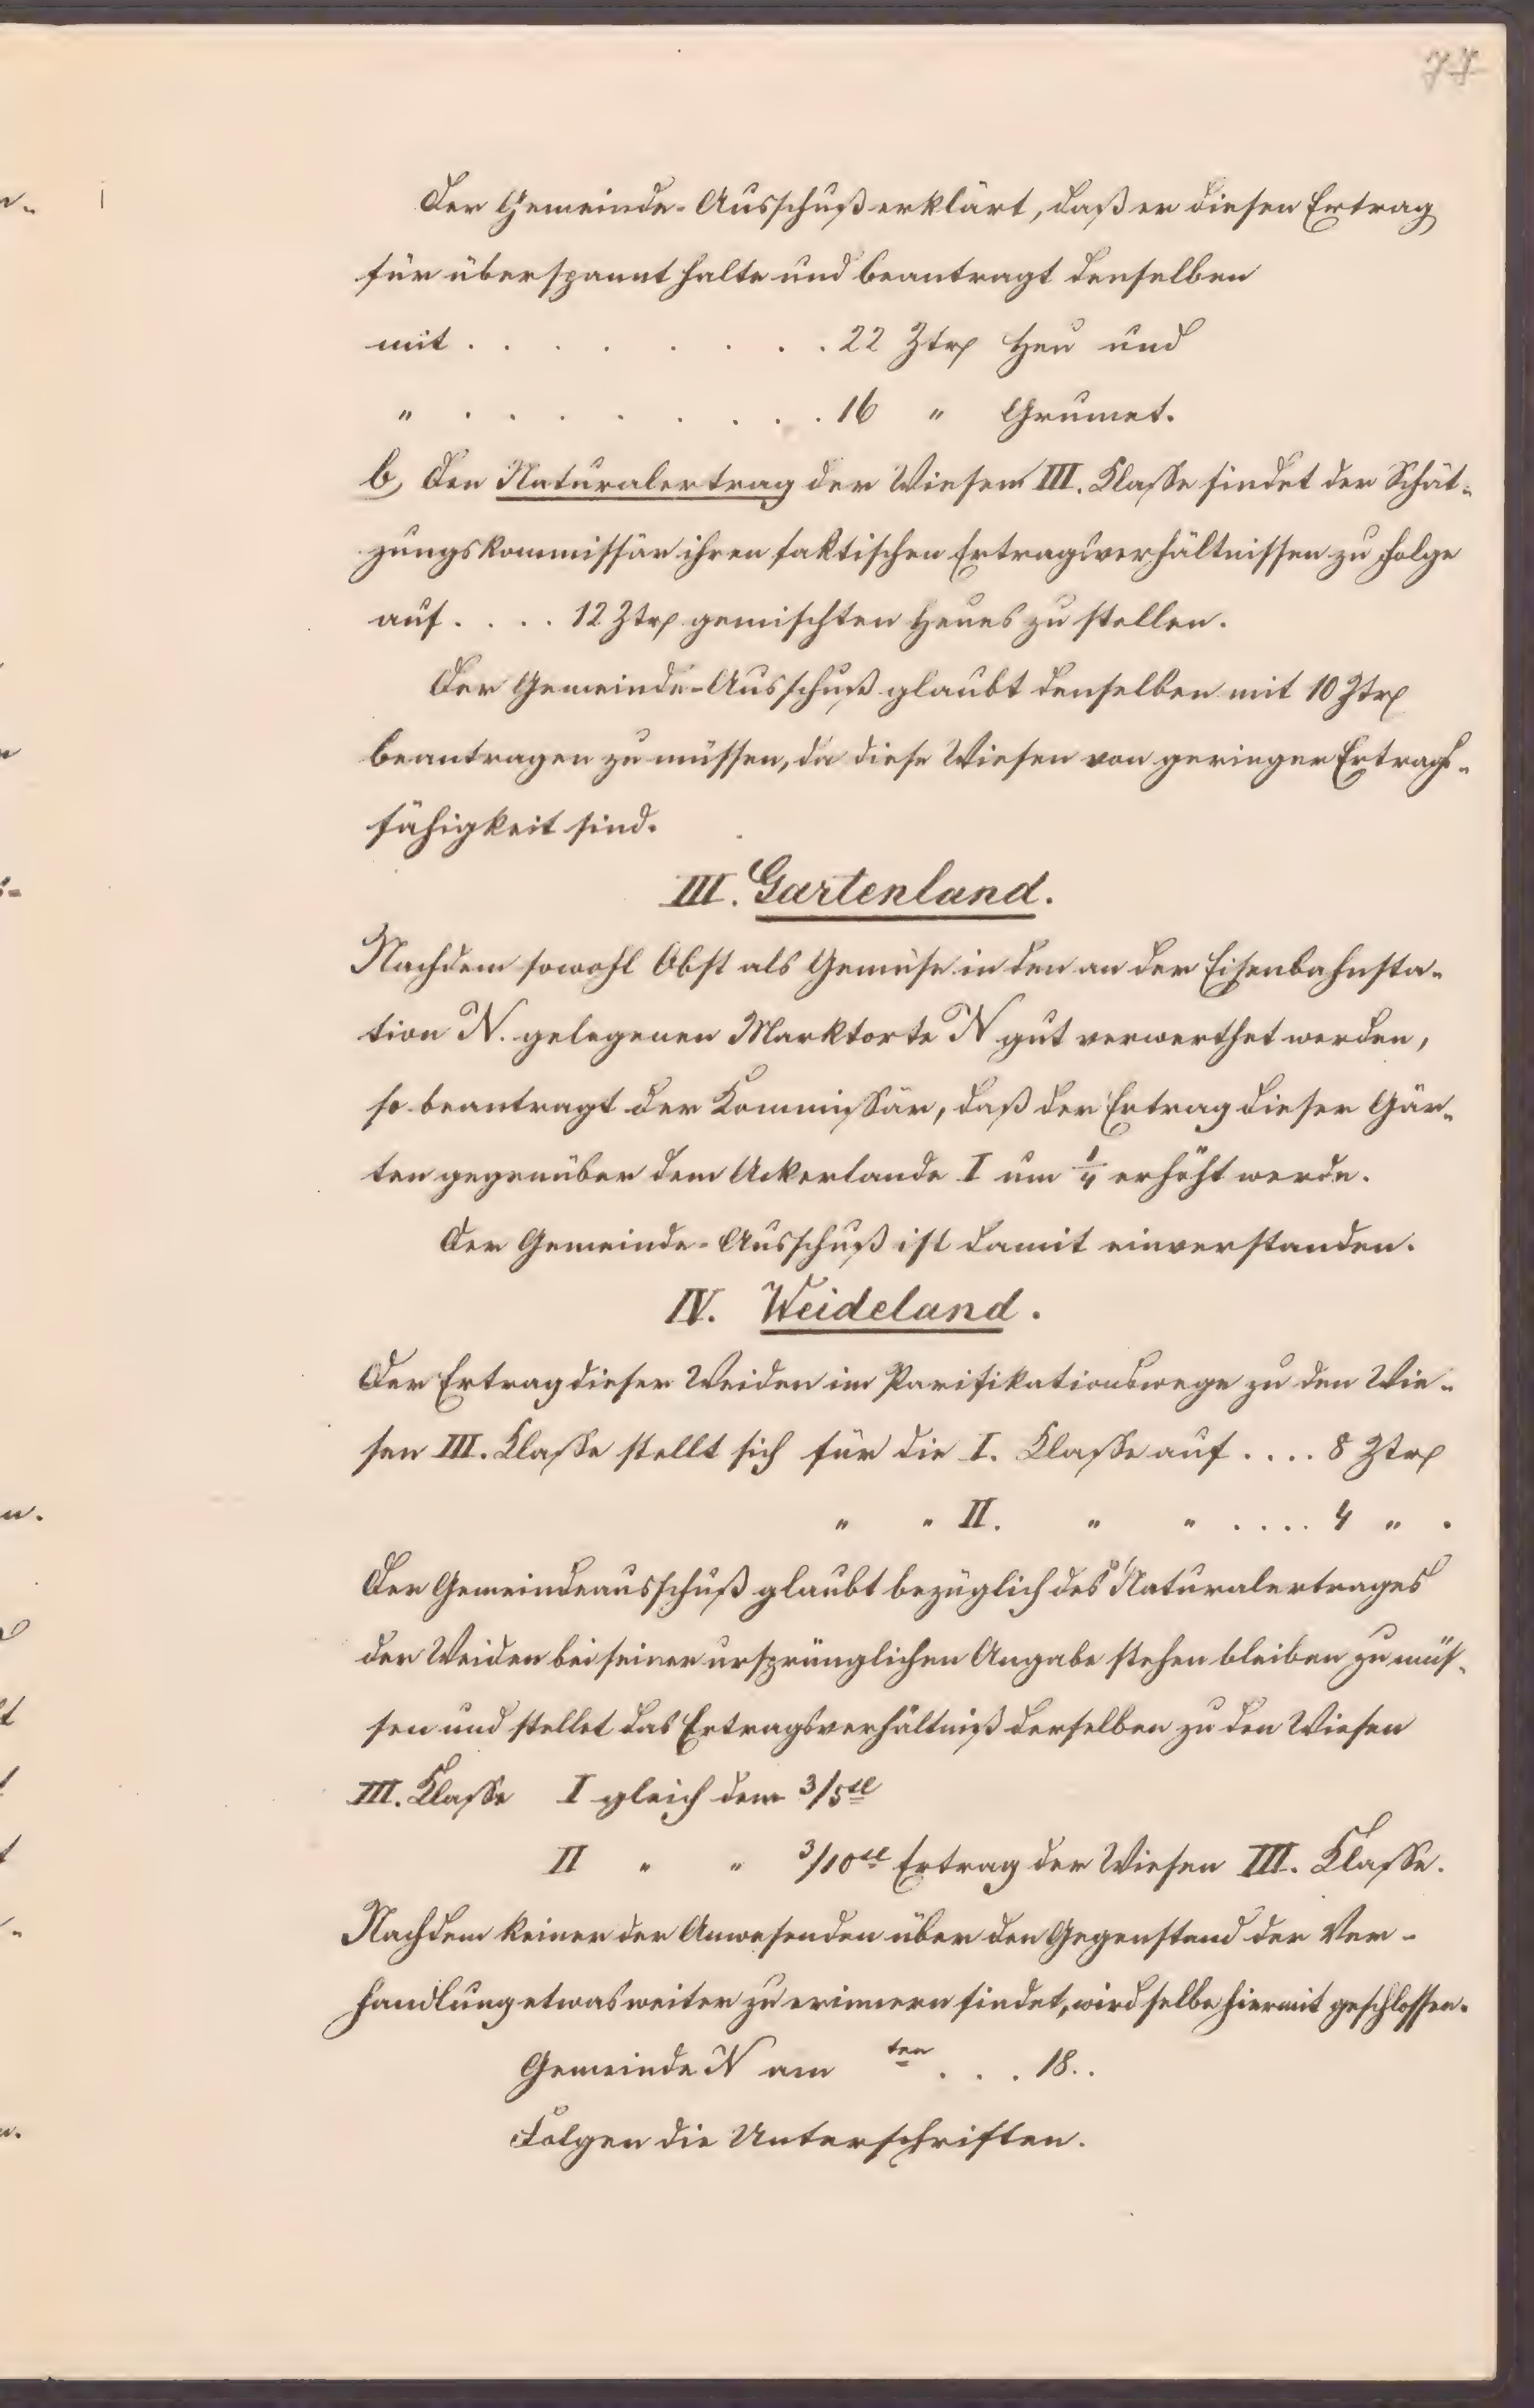 77
Der Gemeinde-Ausschuß erklärt, daß er diesen Ertrag
für überspannt halte und beantragt denselben
mit . . . . . . . . 22 Ztr Heu und
" . . . . . . . . 16 " Grumet.
b, Den Naturalertrag der Wiesen III. Klasse findet der Schät-
zungskommissär ihren faktischen Ertragsverhältnissen zu Folge
auf . . . . 12 Ztr gemischten Heues zu stellen.
Der Gemeinde-Ausschuß glaubt denselben mit 10 Ztr
beantragen zu müssen, da diese Wiesen von geringer Ertrags-
fähigkeit sind.
III. Gartenland.
Nachdem sowohl Obst als Gemüse in den an der Eisenbahnsta-
tion N. gelegenen Marktorte N gut verwerthet werden,
so beantragt der Kommissär, daß der Ertrag dieser Gär-
ten gegenüber dem Ackerlande I um 1/4 erhöht werde.
Der Gemeinde-Ausschuß ist damit einverstanden.
IV. Weideland.
Der Ertrag dieser Weiden im Parifikationswege zu den Wie-
sen III. Klasse stellt sich für die I. Klasse auf . . . . 8 Ztr
" " II. " " . . . . 4 " .
Der Gemeindeausschuß glaubt bezüglich des Naturalertrages
der Weiden bei seiner ursprünglichen Angabe stehen bleiben zu müs-
sen und stellet das Ertragsverhältniß derselben zu den Wiesen
III. Klasse I gleich dem 3/5tel
II " " 3/10tel Ertrag der Wiesen III. Klasse.
Nachdem keiner der Anwesenden über den Gegenstand der Ver-
handlung etwas weiter zu erinnern findet, wird selbe hiermit geschlossen.
Gemeinde N am ten . . . 18..
Folgen die Unterschriften.